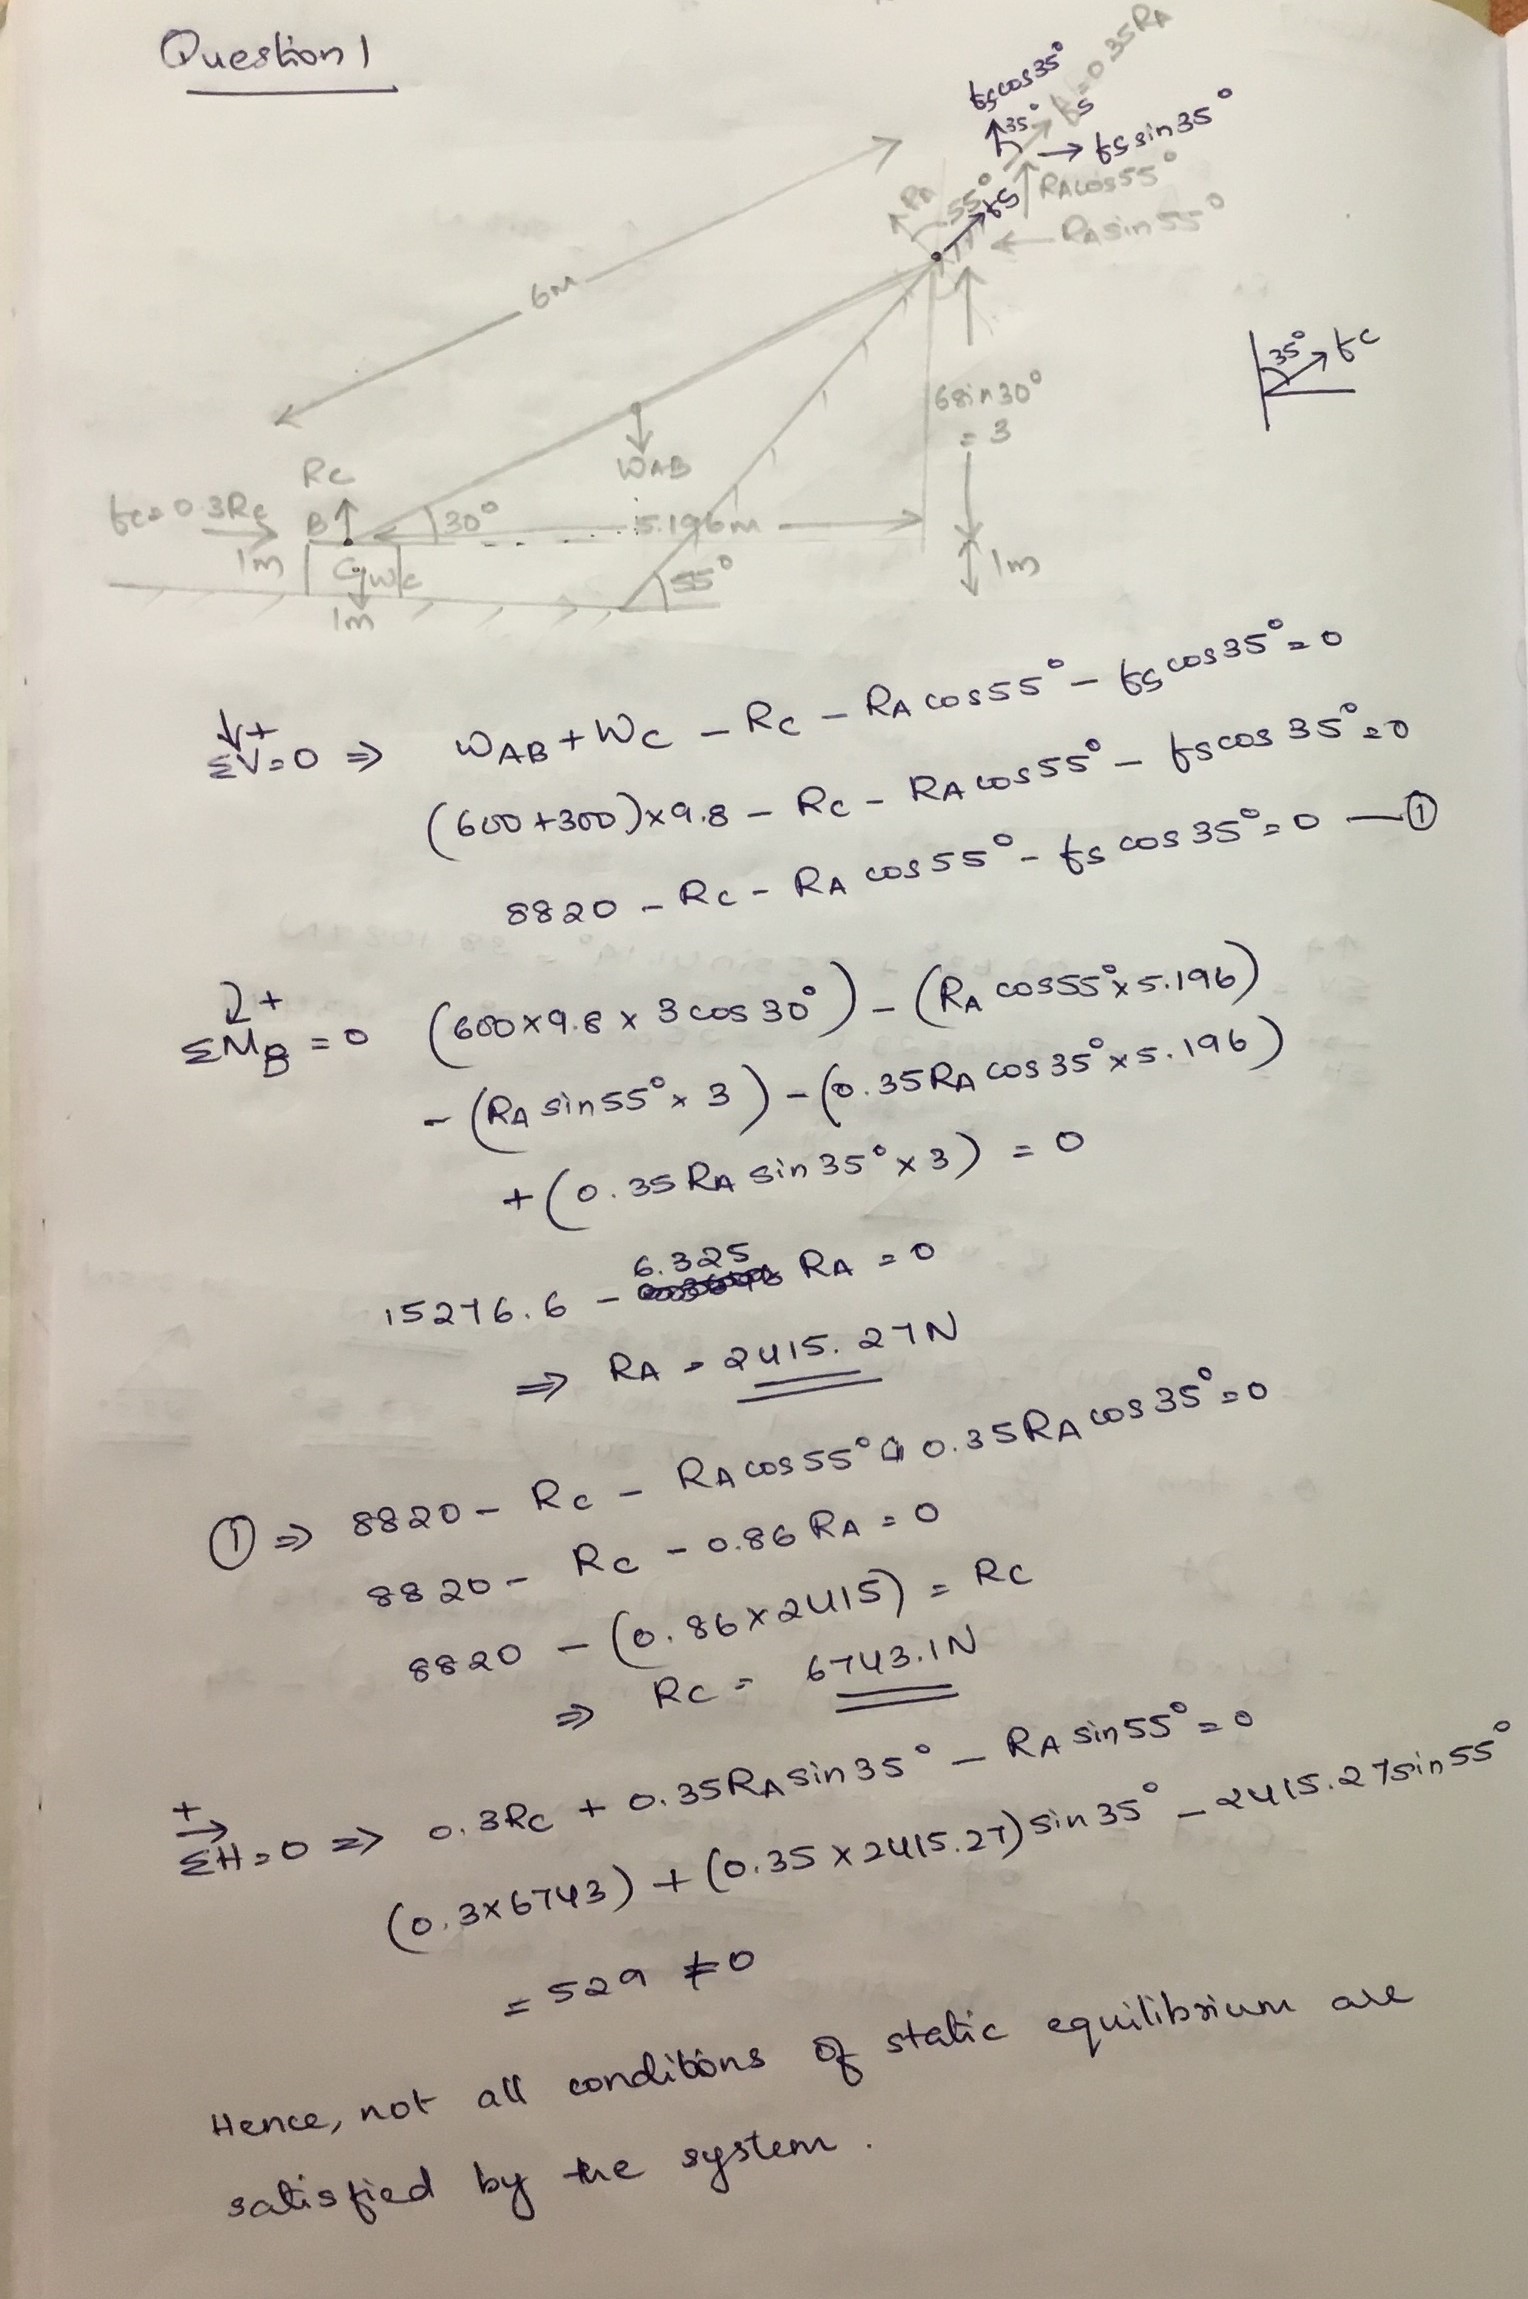 Question 1
fs cos35°
35°
fs
fs=0.35RA
fs sin35°
RA
55°
fs
RAcos55°
RAsin55°
6m
6sin30°
= 3
35°
fc
WAB
Rc
fc=0.3Rc
B
30°
5.196m
1m
G
Wc
55°
1m
1m
↓+
ΣV=0 ⇒ WAB + Wc − Rc − RA cos55° − fs cos35° = 0
(600+300)×9.8 − Rc − RA cos55° − fs cos35° = 0
8820 − Rc − RA cos55° − fs cos35° = 0 — ①
+
ΣMB = 0 (600×9.8×3cos30°) − (RA cos55°×5.196)
− (RA sin55°×3) − (0.35RA cos35°×5.196)
+ (0.35RA sin35°×3) = 0
15276.6 − 6.325 RA = 0
⇒ RA = 2415.27N
① ⇒ 8820 − Rc − RA cos55° − 0.35RA cos35° = 0
8820 − Rc − 0.86 RA = 0
8820 − (0.86×2415) = Rc
⇒ Rc = 6743.1N
+→
ΣH=0 ⇒ 0.3Rc + 0.35RA sin35° − RA sin55° = 0
(0.3×6743) + (0.35×2415.27) sin35° − 2415.27sin55°
= 529 ≠ 0
Hence, not all conditions of static equilibrium are
satisfied by the system.